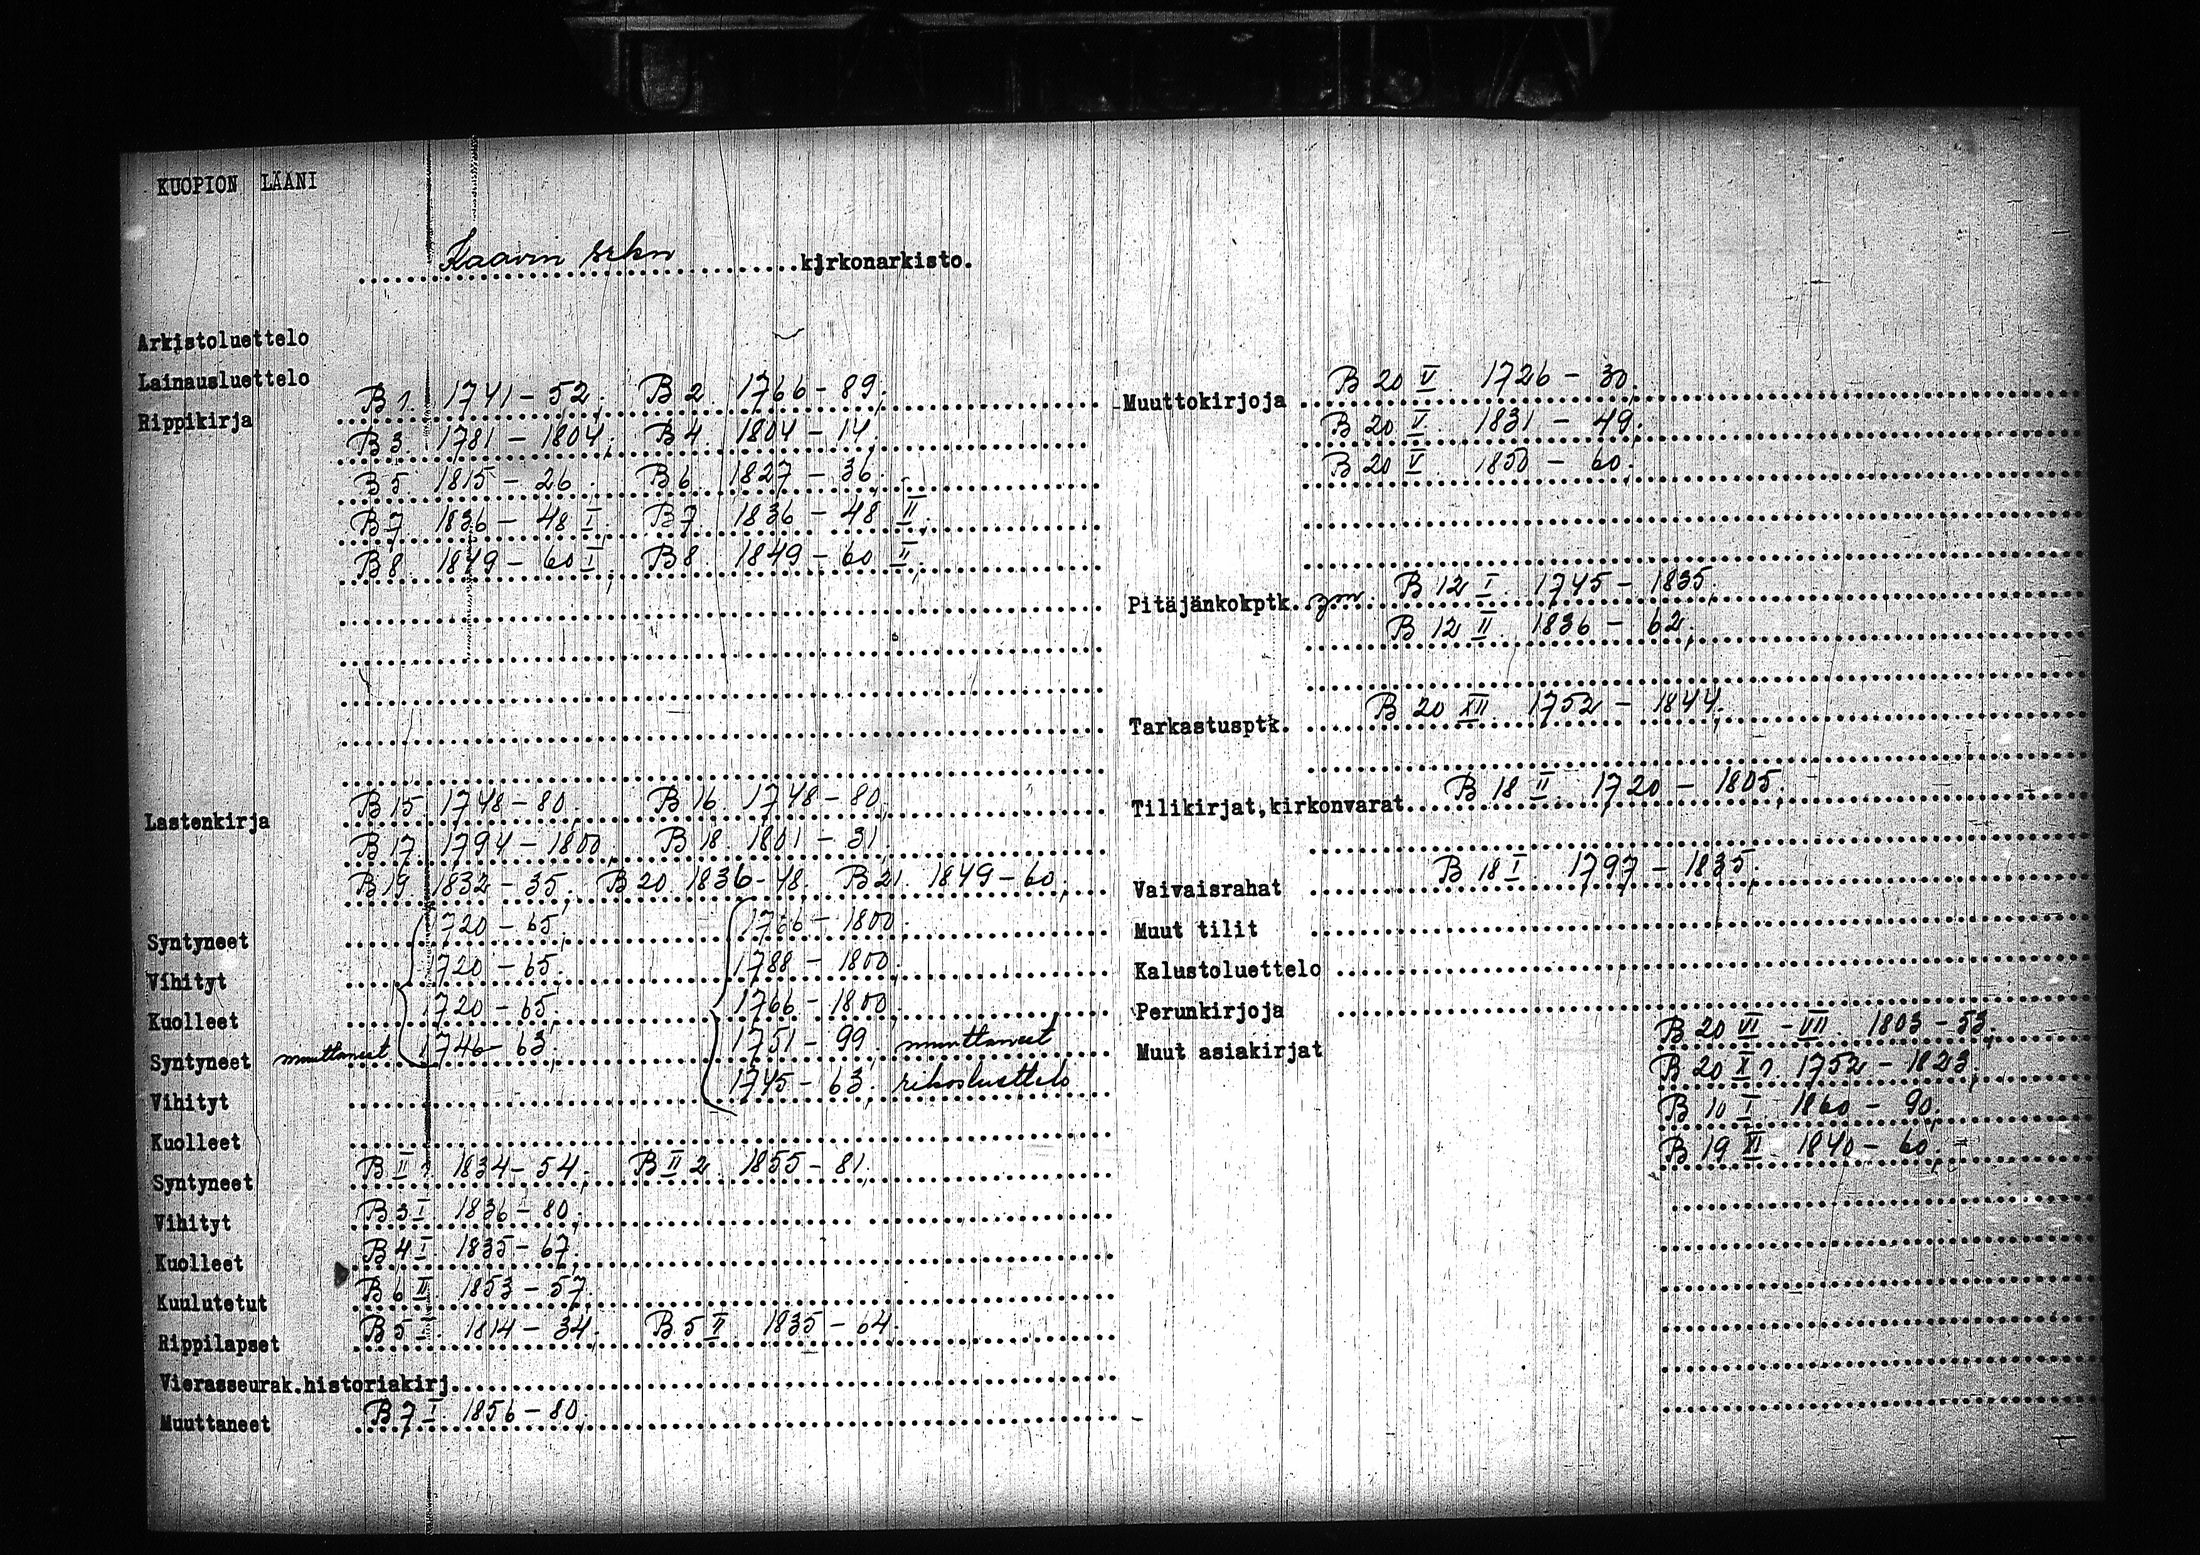 KUOPION LÄÄNI
Kaavin srkn kirkonarkisto.
Arkistoluettelo
Lainausluettelo
Rippikirja B 1. 1741 - 52; B 2. 1766 - 89;
B 3. 1781 - 1804; B 4. 1804 - 14;
B 5. 1815 - 26; B 6. 1827 - 36;
B 7. 1836 - 48 I; B 7. 1836 - 48 II;
B 8. 1849 - 60 I; B 8. 1849 - 60 II;
Lastenkirja B 15. 1748 - 80; B 16. 1748 - 80;
B 17. 1794 - 1800; B 18. 1801 - 31;
B 19. 1832 - 35; B 20. 1836 - 48; B 21. 1849 - 60;
Syntyneet 1720 - 65; 1766 - 1800;
Vihityt 1720 - 65; 1788 - 1800;
Kuolleet 1720 - 65; 1766 - 1800;
Syntyneet muuttaneet 1746 - 63; 1751 - 99; muuttaneet
Vihityt 1745 - 63; rikosluettelo
Kuolleet
Syntyneet B II 1. 1834 - 54; B II 2. 1855 - 81;
Vihityt B 3 I. 1836 - 80;
Kuolleet B 4 I. 1835 - 67;
Kuulutetut B 6 II. 1853 - 57;
Rippilapset B 5 I. 1814 - 34; B 5 II 1835 - 64;
Vierasseurak.historiakirj.
Muuttaneet B 7 I. 1856 - 80;
Muuttokirjoja B 20 V. 1726 - 30;
B 20 V. 1831 - 49;
B 20 V. 1850 - 60;
Pitäjänkokptk. ym. B 12 I. 1745 - 1835;
B 12 II. 1836 - 62;
Tarkastusptk. B 20 XII. 1752 - 1844;
Tilikirjat,kirkonvarat B 18 II. 1720 - 1805;
Vaivaisrahat B 18 I. 1797 - 1835;
Muut tilit
Kalustoluettelo
Perunkirjoja
Muut asiakirjat B 20 VI - VII. 1803 - 53;
B 20 X 1. 1752 - 1823;
B 10 I. 1860 - 90;
B 19 XI. 1840 - 60;